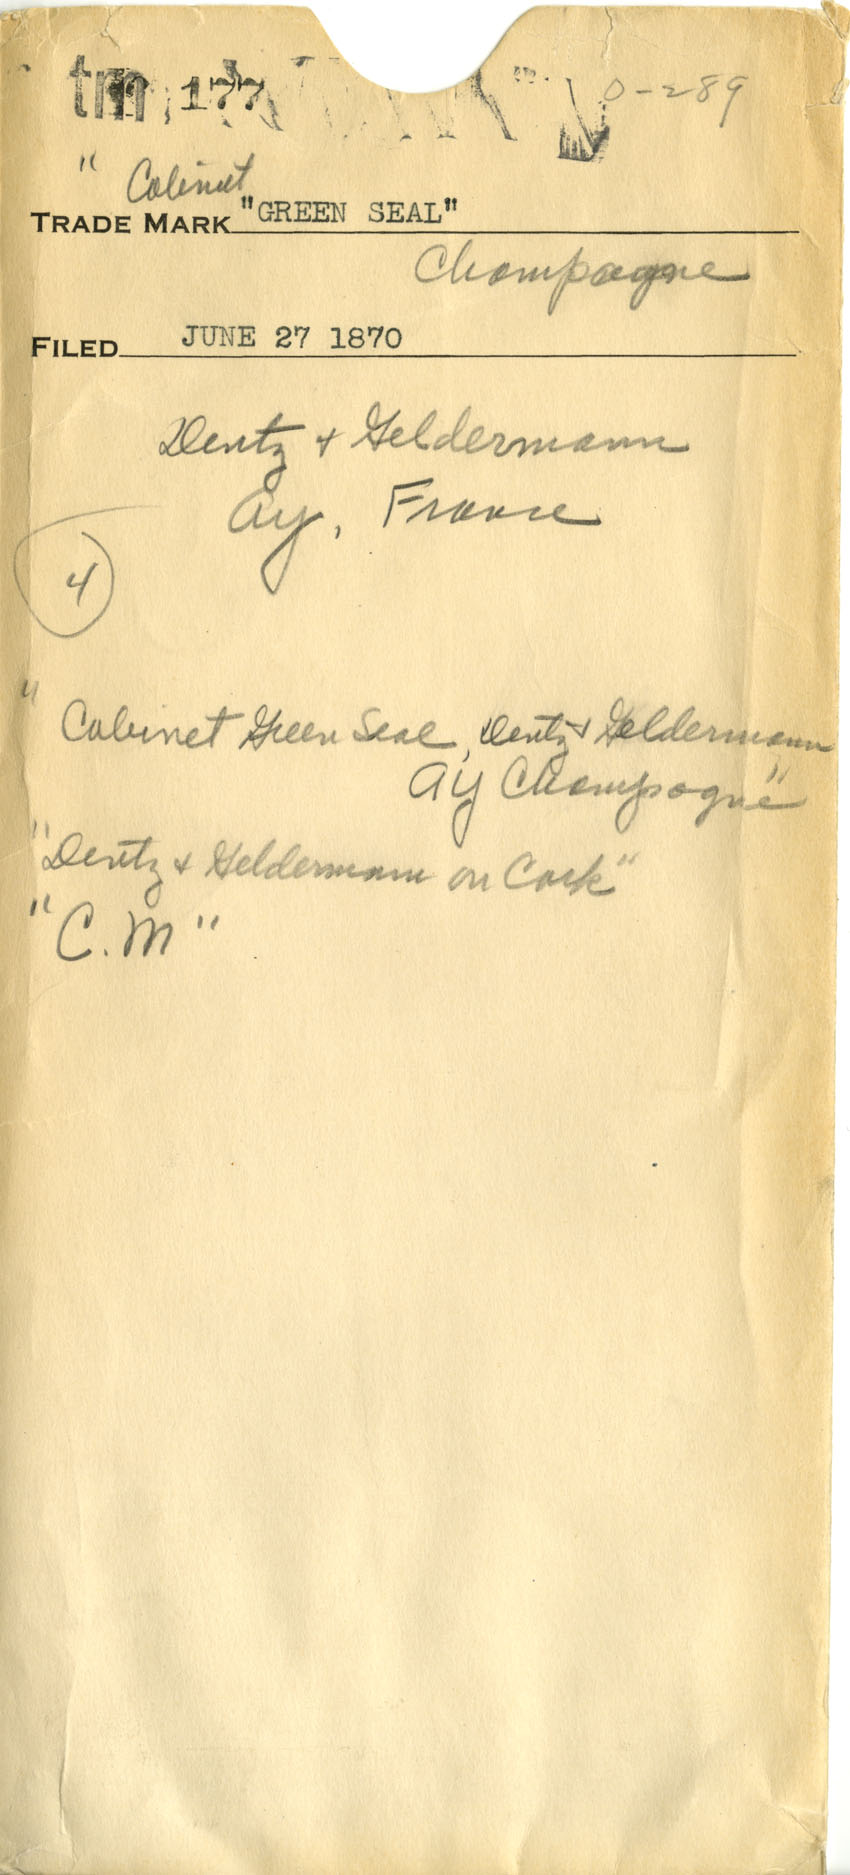 tm 177
0-289
" Cabinet
TRADE MARK "GREEN SEAL"
Champagne
FILED JUNE 27 1870
Deutz & Geldermann
Ay, France
4
" Cabinet Green Seal, Deutz & Geldermann
Ay Champagne"
"Deutz & Geldermann on Cork"
"C.M"